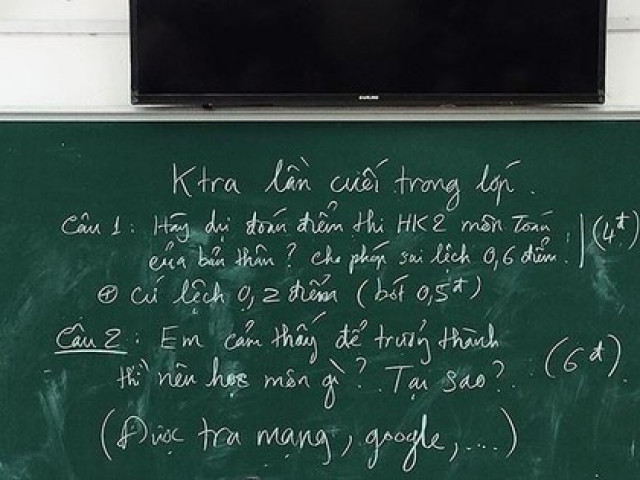 Ktra lần cuối trong lớp.
Câu 1: Hãy dự đoán điểm thi HK2 môn Toán
của bản thân? cho phép sai lệch 0,6 điểm. (4đ)
+ Cứ lệch 0,2 điểm (bớt 0,5đ)
Câu 2: Em cảm thấy để trưởng thành
thì nên học môn gì? Tại sao? (6đ)
(Được tra mạng, google, ...)